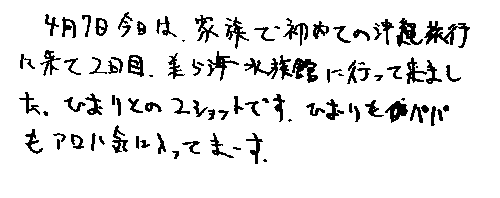 4月7日今日は、家族で初めての沖縄旅行
に来て2日目、美ら海水族館に行って来まし
た。ひまりとの2ショットです。ひまりもパパ
もアロハ気に入ってまーす。